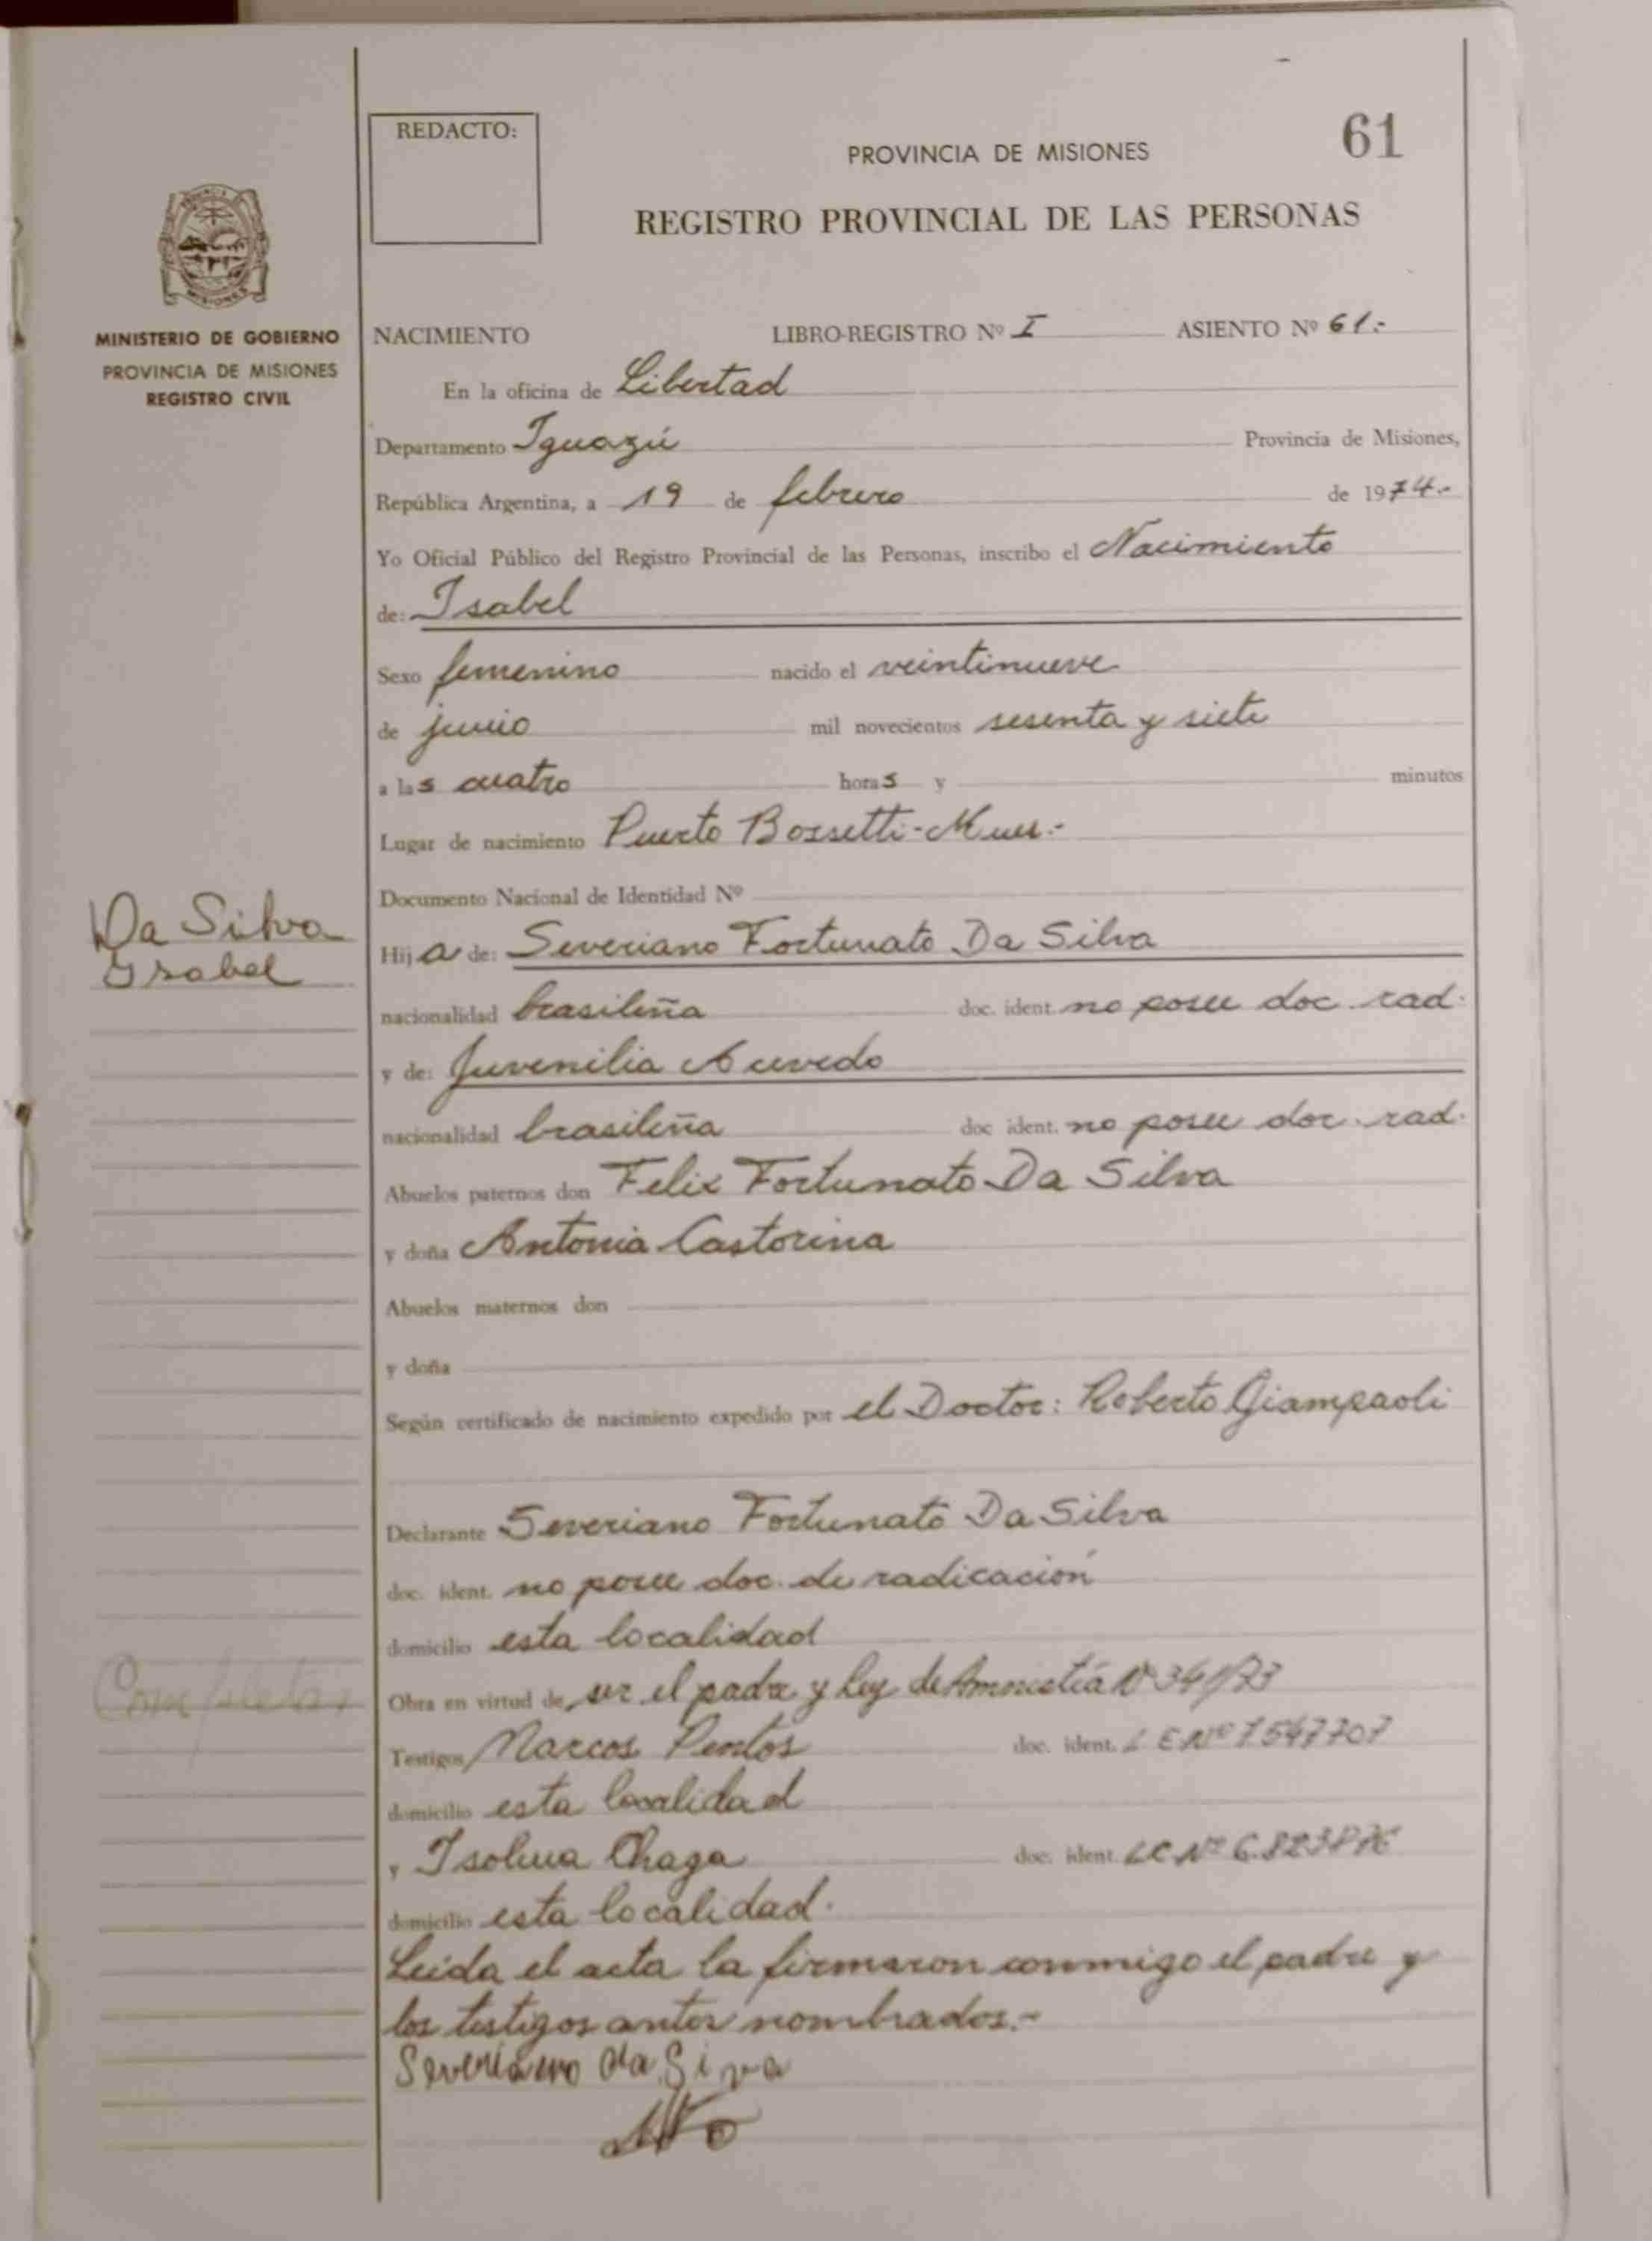 REDACTO:
61
PROVINCIA DE MISIONES
REGISTRO PROVINCIAL DE LAS PERSONAS
MINISTERIO DE GOBIERNO
PROVINCIA DE MISIONES
REGISTRO CIVIL
NACIMIENTO LIBRO-REGISTRO Nº I ASIENTO Nº 61.-
En la oficina de Libertad
Departamento Iguazú Provincia de Misiones,
República Argentina, a 19 de febrero de 1974.-
Yo Oficial Público del Registro Provincial de las Personas, inscribo el Nacimiento
de: Isabel
Sexo femenino nacido el veintinueve
de junio mil novecientos sesenta y siete
a las cuatro horas y minutos
Lugar de nacimiento Puerto Bossetti-
Documento Nacional de Identidad Nº
Da Silva
Isabel
Hija de: Severiano Fortunato Da Silva
nacionalidad brasileña doc. ident. no posee doc. rad.
y de: Juvenilia Acevedo
nacionalidad brasileña doc ident. no posee doc. rad.
Abuelos paternos don Felix Fortunato Da Silva
y doña Antonia Castorina
Abuelos maternos don
y doña
Según certificado de nacimiento expedido por el Doctor: Roberto Giampaoli
Declarante Severiano Fortunato Da Silva
doc. ident. no posee doc. de radicación
domicilio esta localidad
Obra en virtud de ser el padre y Ley de Amnistía Nº
Testigos Marcos Pintos doc. ident. L E Nº 7547707
domicilio esta localidad
y Isolina Chaga doc. ident. LC Nº
domicilio esta localidad.
Leída el acta la firmaron conmigo el padre y
los testigos antes nombrados.-
Severiano da Silva